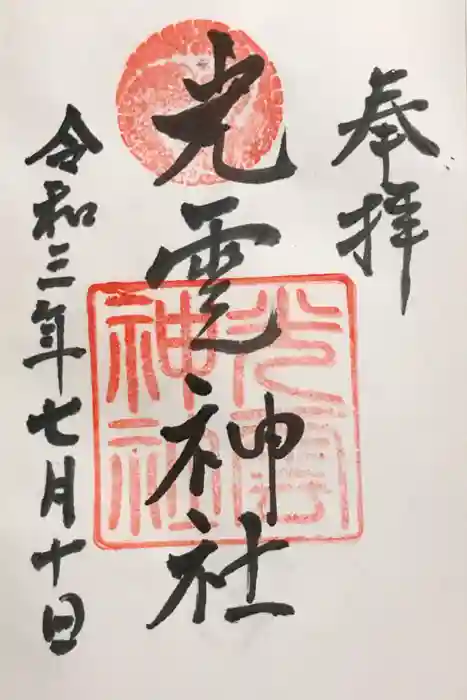 奉拝
光雲神社
光雲
神社
令和三年七月十日